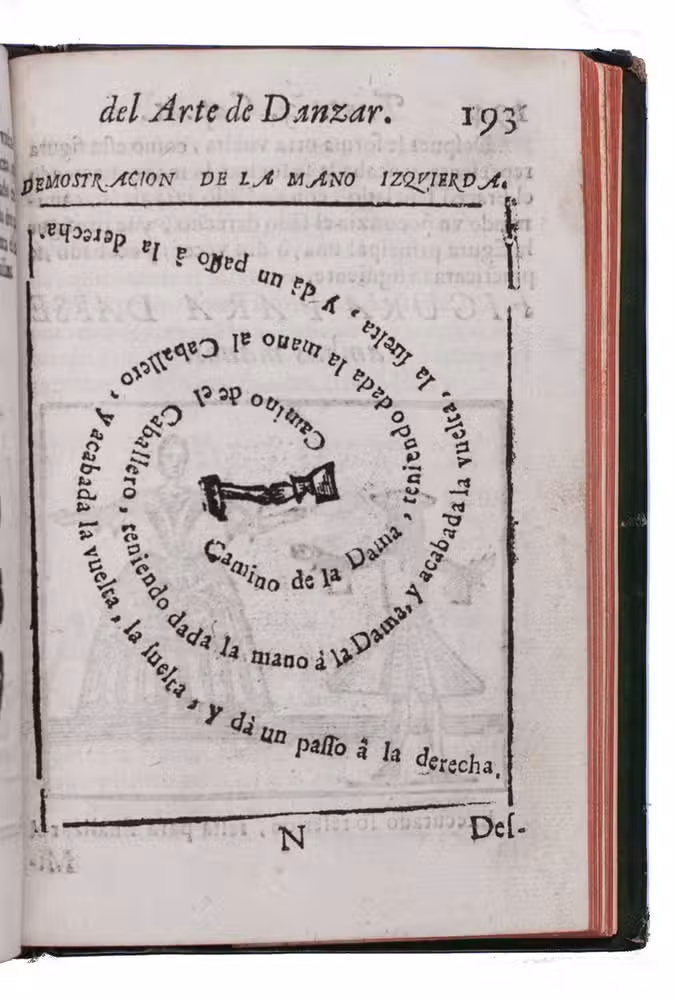 del Arte de Danzar. 193
DEMOSTRACION DE LA MANO IZQVIERDA.
Camino de el Caballero, teniendo dada la mano á la Dama, y acabada la vuelta, la ſuelta, y dà un paſſo à la derecha.
Camino de la Dama, teniendo dada la mano al Caballero, y acabada la vuelta, la ſuelta, y dà un paſſo â la derecha.
N Deſ-